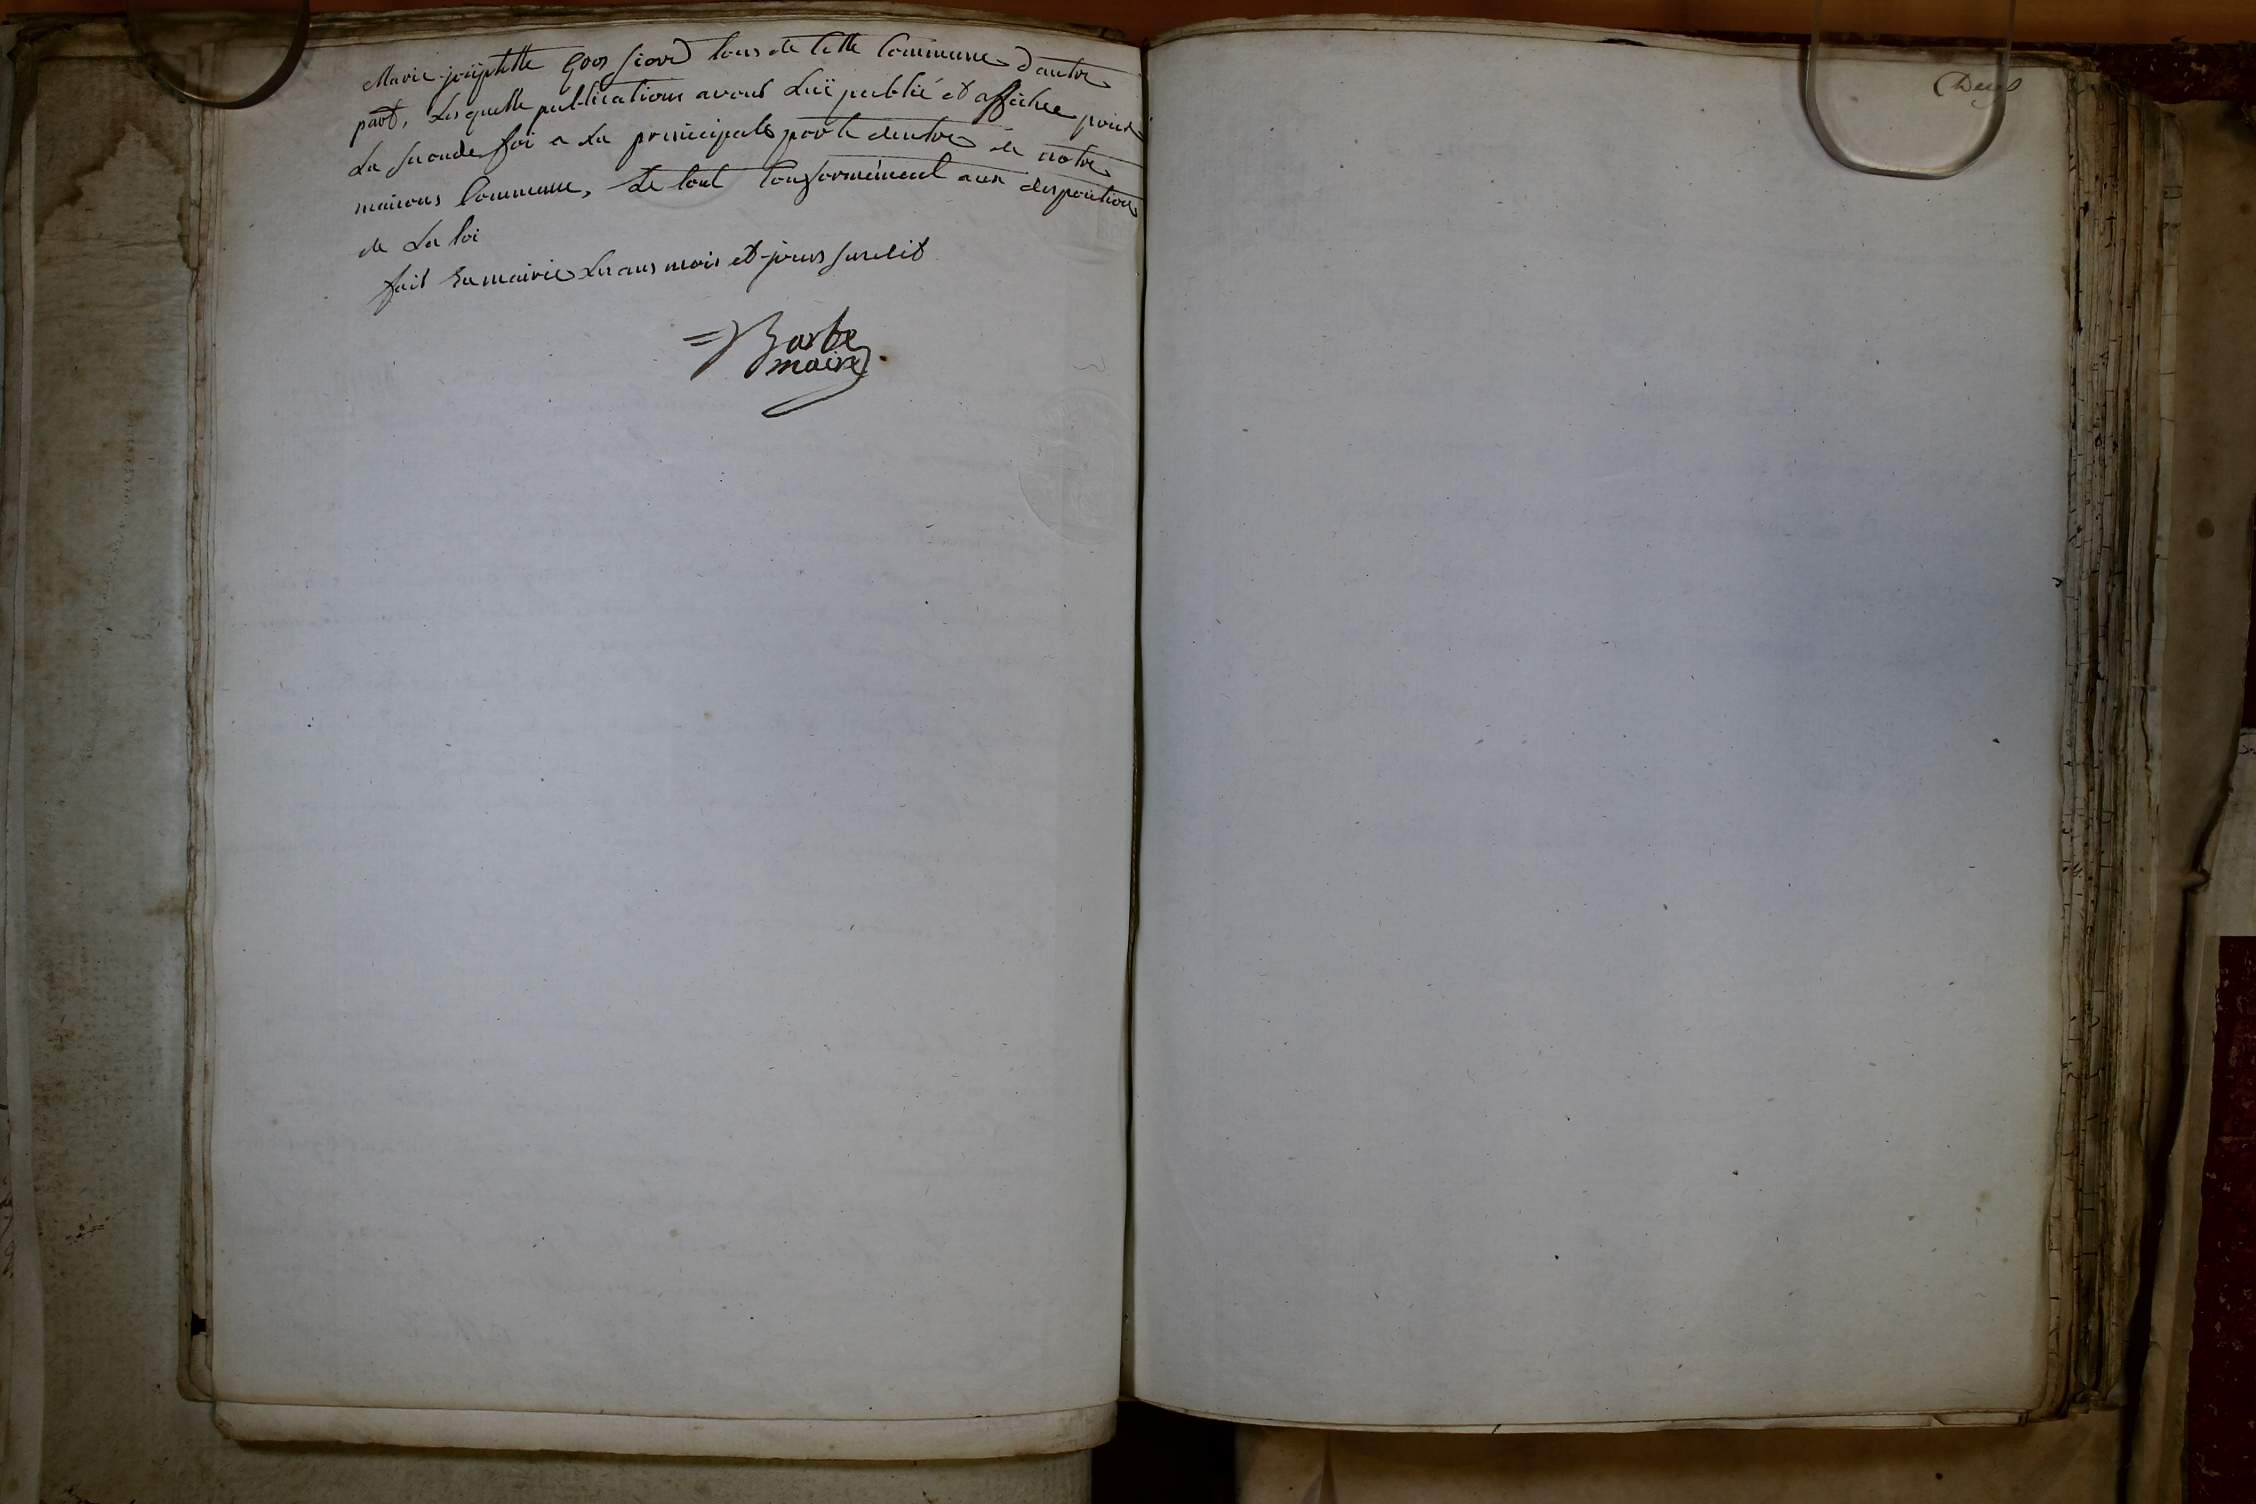 Marie josephette tous de cette Commune d'autre
part, Lesquelle publications avons Luë publié et affichee pour
La seconde foi a La principale porte dentre de notre
maisons Commune, Le tout Conformément aux disposition
de La loi
fait En mairie Les ans mois et jours susdit
Barbe
maire